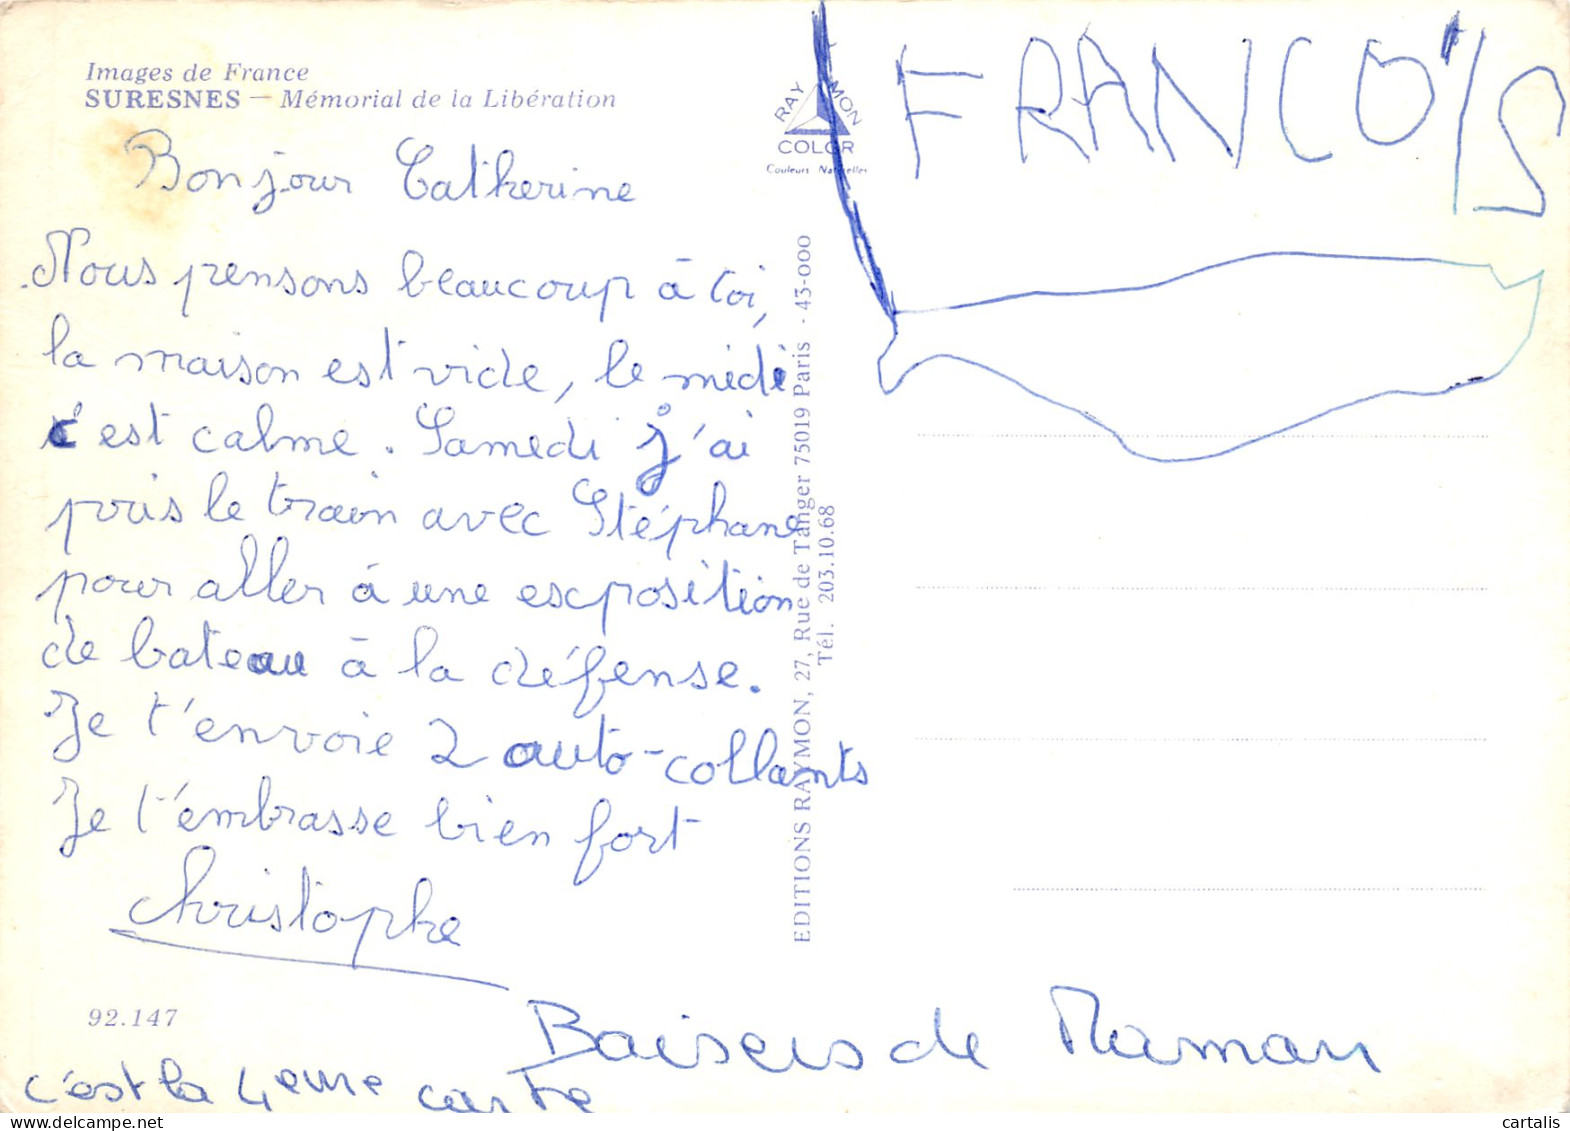 Images de France
SURESNES — Mémorial de la Libération
Bonjour Catherine
Nous pensons beaucoup à toi,
la maison est vide, le midi
c'est calme. Samedi j'ai
pris le train avec Stéphane
pour aller à une exposition
de bateau à la défense.
Je t'envoie 2 auto-collants
Je t'embrasse bien fort
Christophe
92.147
Baisers de Maman
c'est la 4eme carte
RAYMON
COLOR
Couleurs Naturelles
EDITIONS RAYMON, 27, Rue de Tanger 75019 Paris - 43-000
Tél. 203.10.68
FRANCOIS
cartalis